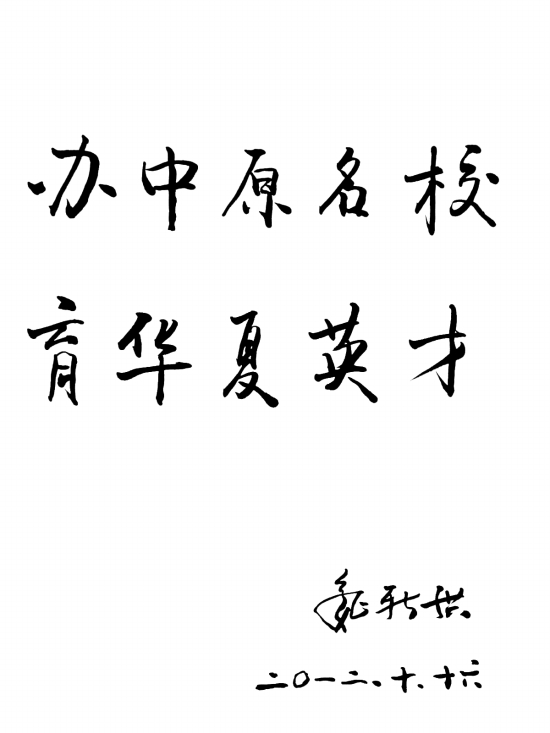 办中原名校
育华夏英才
二〇一二.十.十六